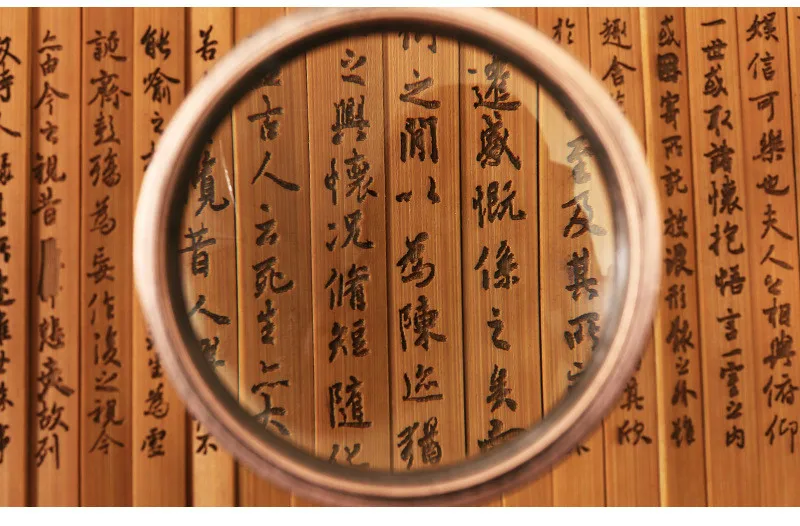 娛信可樂也夫人之相與俯仰
一世或取諸懷抱悟言一室之內
或因寄所託放浪形骸之外雖
趣舍 其欣
於 至及其所
遷感慨係之矣向
之間以為陳迹猶
之興懷況脩短隨化
古人云死生亦大
若 覽昔人興 不
能喻之 生為虛
誕齊彭殤為妄作後之視今
亦由今之視昔悲夫故列
時人錄其所述雖世殊事